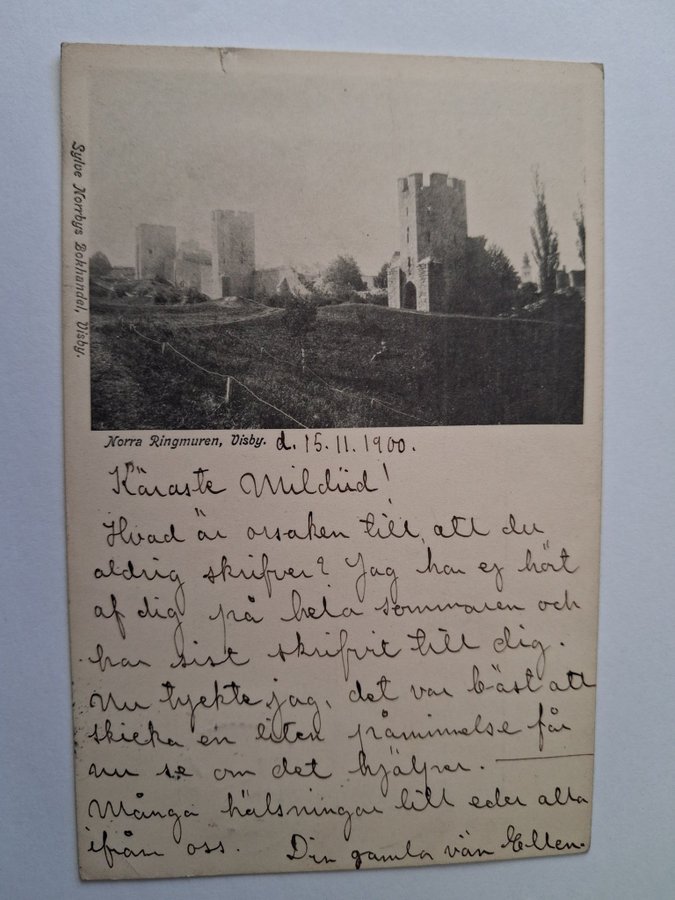 Sylve Norrbys Bokhandel, Visby.
Norra Ringmuren, Visby. d. 15.11.1900.
Käraste Mildüd!
Hvad är orsaken till, att du
aldrig skrifver? Jag har ej hört
af dig på hela sommaren och
har sist skrifvit till dig.
Nu tyckte jag, det var bäst att
skicka en liten påminnelse får
nu se om det hjälper.
Många hälsningar till eder alla
ifrån oss. Din gamla vän Ellen.